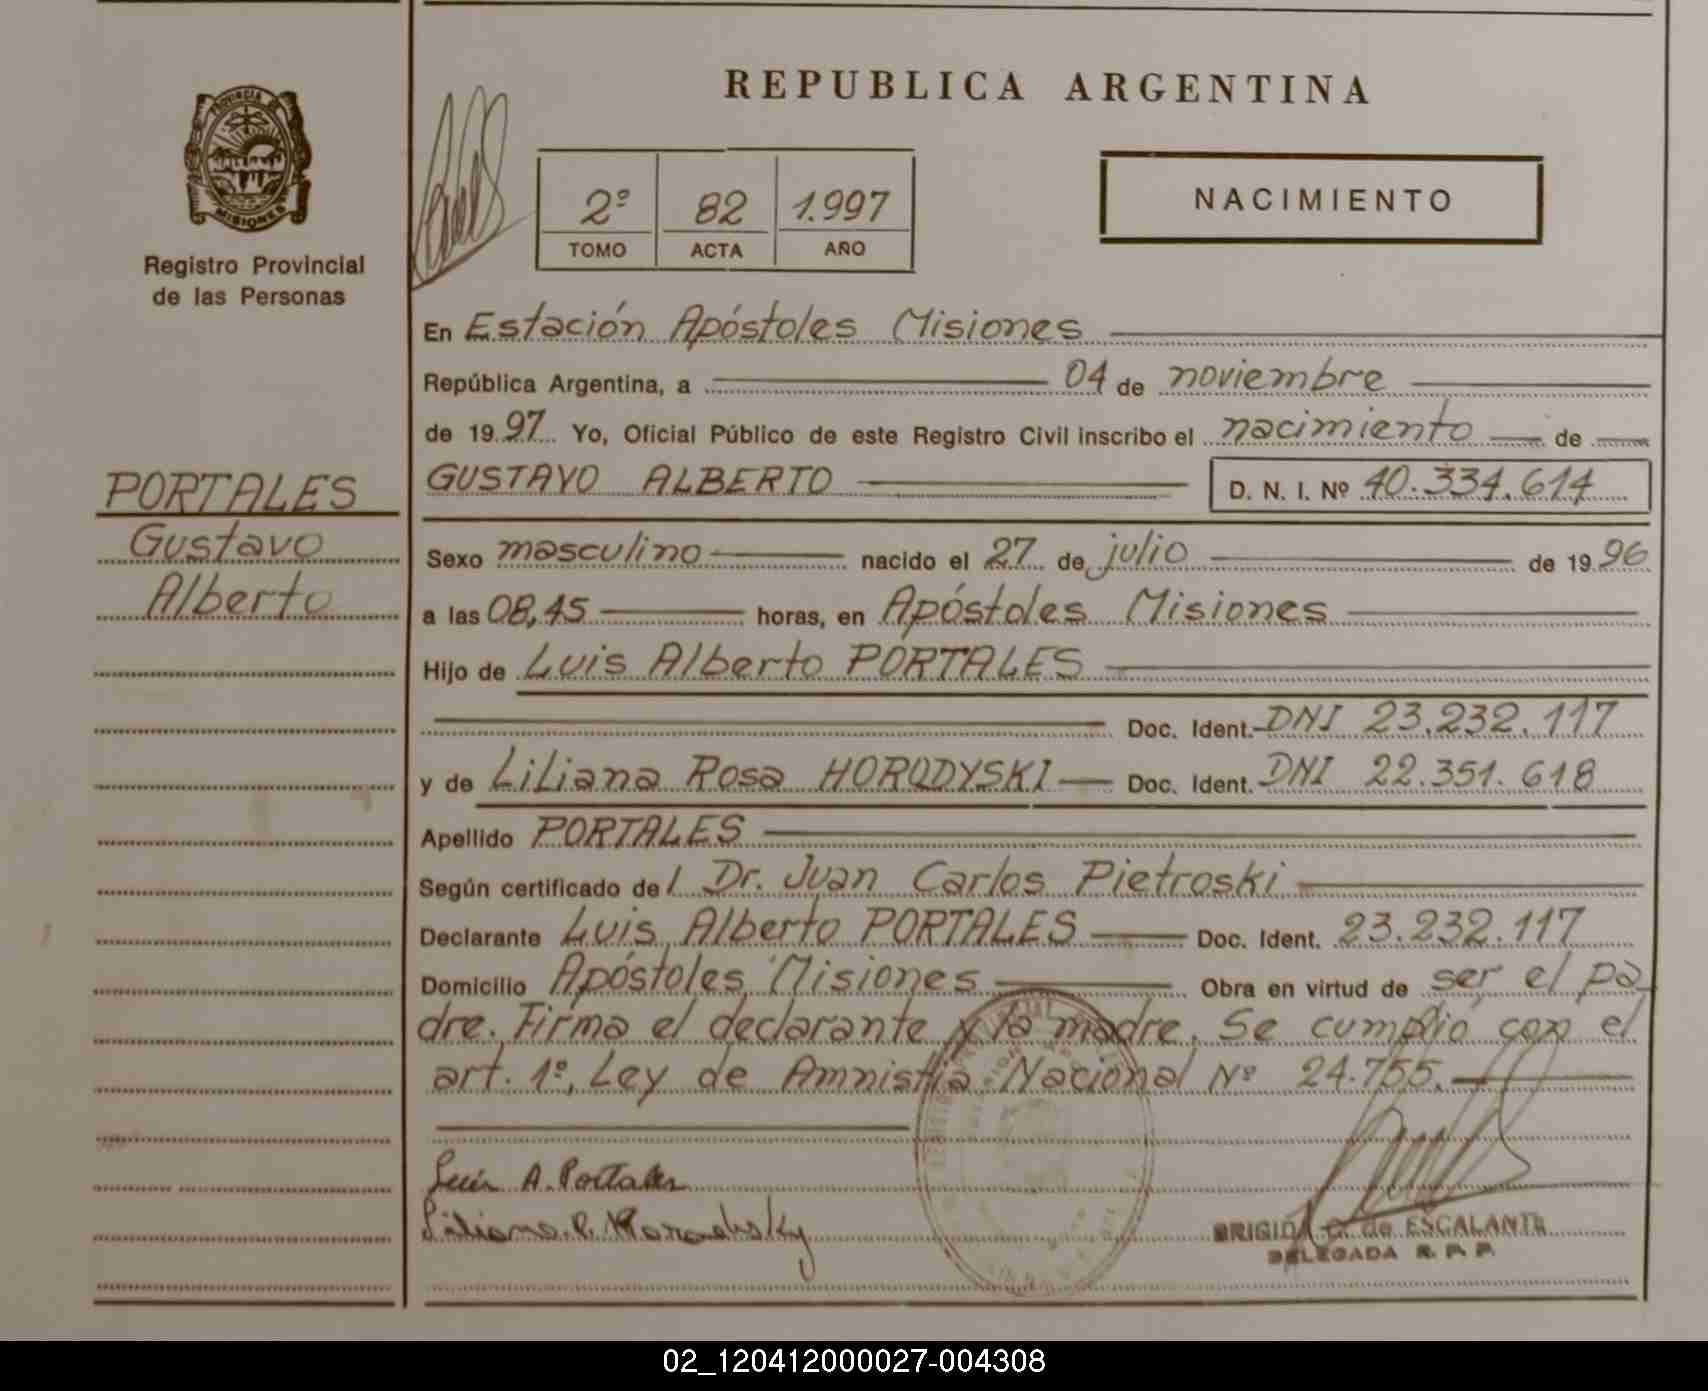 REPUBLICA ARGENTINA
PROVINCIA DE
MISIONES
Registro Provincial
de las Personas
2º 82 1.997
TOMO ACTA AÑO
NACIMIENTO
En Estación Apóstoles Misiones
República Argentina, a 04 de noviembre
de 19 97 Yo, Oficial Público de este Registro Civil inscribo el nacimiento de
GUSTAVO ALBERTO D. N. I. Nº 40.334.614
PORTALES
Gustavo
Alberto
Sexo masculino nacido el 27 de julio de 19 96
a las 08,45 horas, en Apóstoles Misiones
Hijo de Luis Alberto PORTALES
Doc. Ident. DNI 23.232.117
y de Liliana Rosa HORODYSKI Doc. Ident. DNI 22.351.618
Apellido PORTALES
Según certificado del Dr. Juan Carlos Pietroski
Declarante Luis Alberto PORTALES Doc. Ident. 23.232.117
Domicilio Apóstoles Misiones Obra en virtud de ser el pa
dre. Firma el declarante y la madre. Se cumplió con el
art. 1º, Ley de Amnistía Nacional Nº 24.755.
Luis A. Portales
Liliana R.
BRIGIDA de ESCALANTE
DELEGADA R. P. P.
02_120412000027-004308